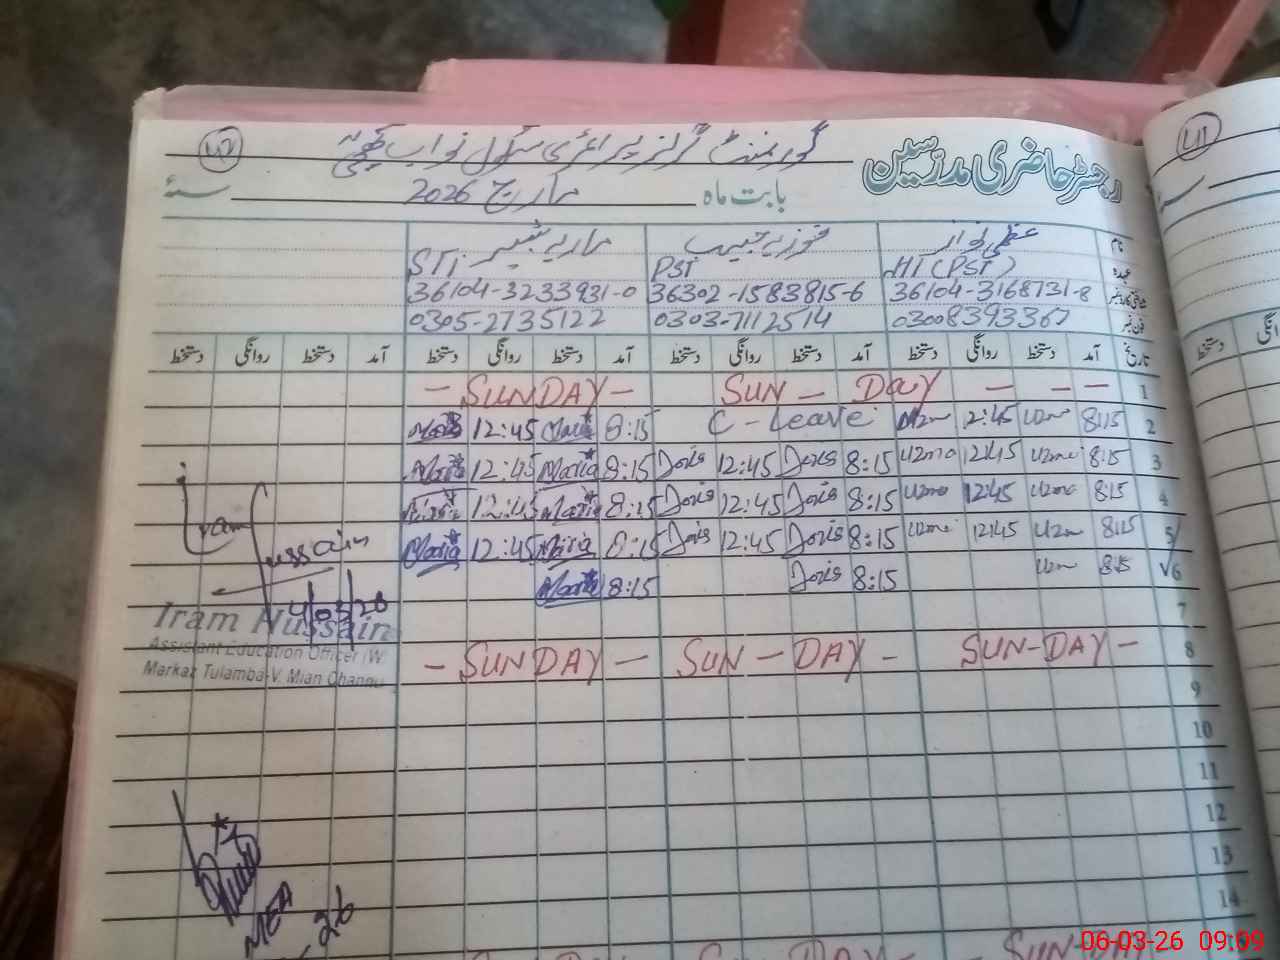 رجسٹر حاضری مدرسین
گورنمنٹ گرلز پرائمری سکول نواب
بابت ماہ مارچ 2026 سنۂ
نام عظمیٰ نواز فوزیہ حبیب ماریہ بشیر
عہدہ HT (PST) PST STI
شناختی کارڈ نمبر 36104-3168731-8 36302-1583815-6 36104-3233931-0
فون نمبر 03008393367 0303-7112514 0305-2735122
تاریخ آمد دستخط روانگی دستخط آمد دستخط روانگی دستخط آمد دستخط روانگی دستخط آمد دستخط روانگی دستخط
1 - SUNDAY - SUN - DAY - - -
2 8:15 Uzm 12:45 Uzm C - Leave 8:15 Maria 12:45 Maria
3 8:15 Uzma 12:45 Uzma 8:15 Doris 12:45 Doris 8:15 Maria 12:45 Maria
4 8:15 Uzma 12:45 Uzma 8:15 Doris 12:45 Doris 8:15 Maria 12:45 Maria
5 8:15 Uzm 12:45 Uzma 8:15 Doris 12:45 Doris 8:15 Maria 12:45 Maria
6 8:15 Uzm 8:15 Doris 8:15 Maria
7
8 - SUNDAY - SUN - DAY - SUN-DAY -
9
10
11
12
13
14
SUN-DAY
Iram Hussain
Iram Hussain
Assistant Education Officer (W
Markaz Tulamba-V, Mian Channu
MEA
06-03-26 09:09